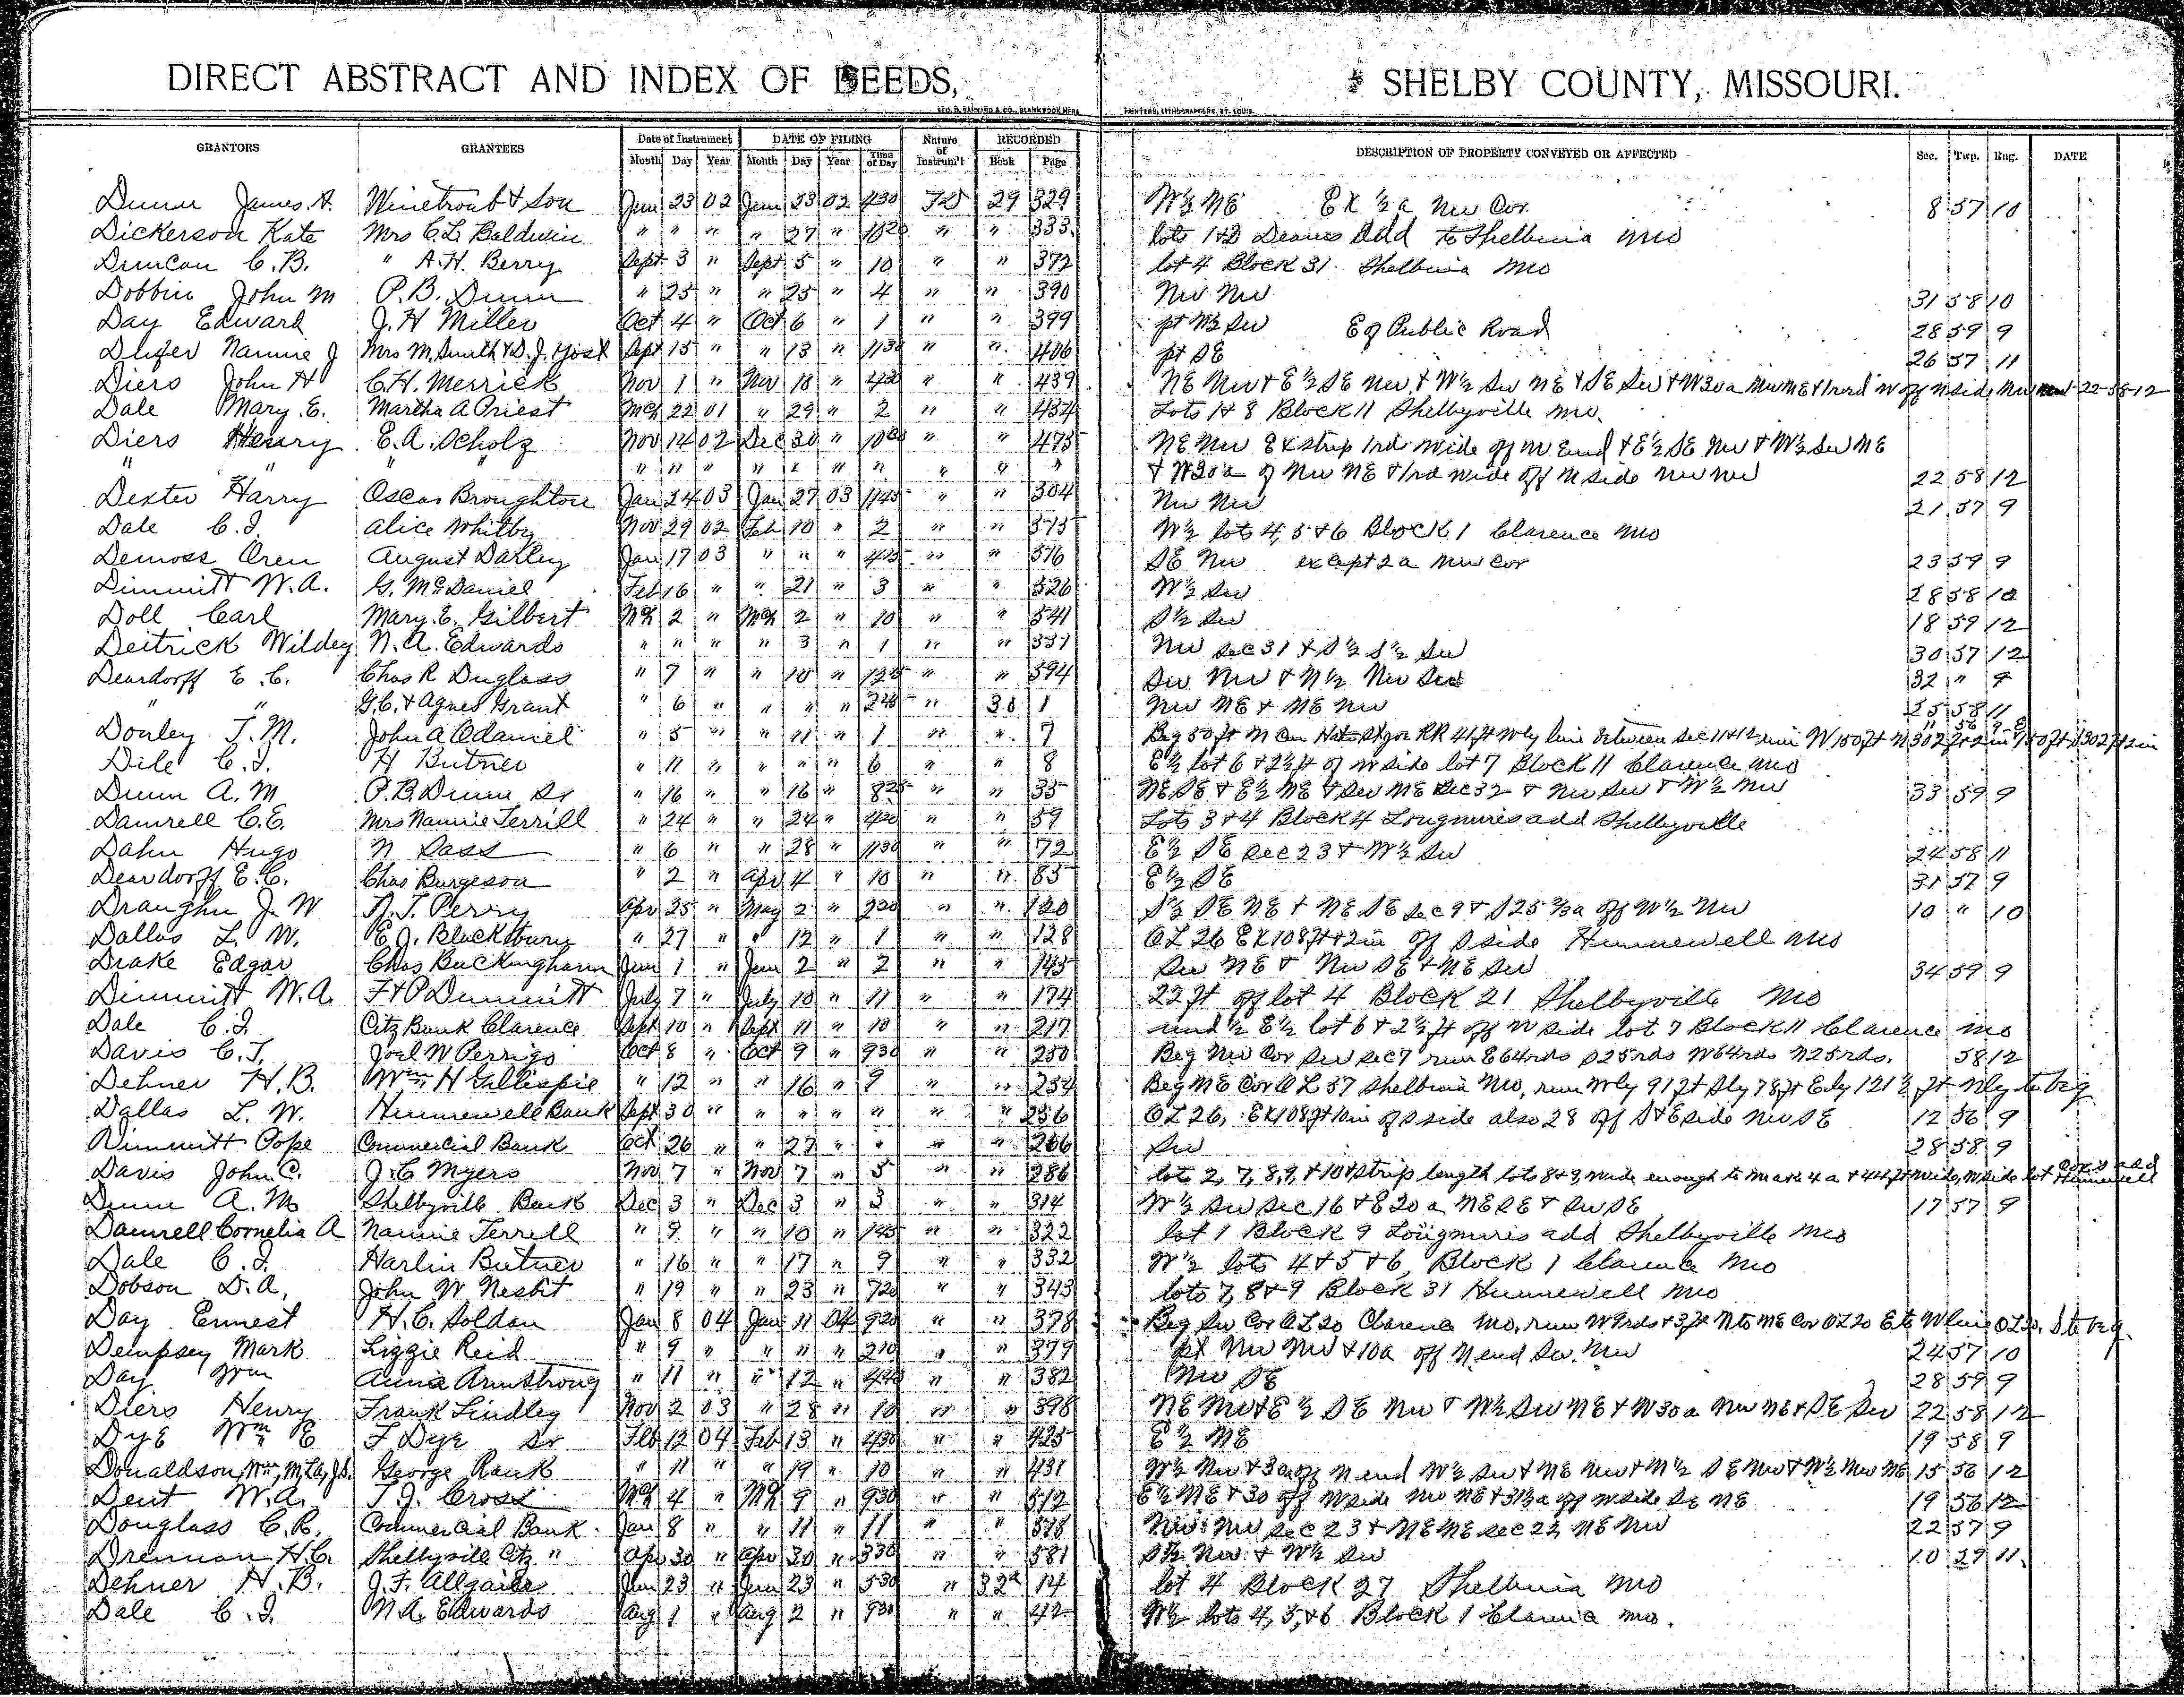 DIRECT ABSTRACT AND INDEX OF DEEDS, SHELBY COUNTY, MISSOURI.
GEO. D. BARNARD & CO., BLANK BOOK MFRS PRINTERS, LITHOGRAPHERS, ST. LOUIS.
GRANTORS GRANTEES Date of Instrument DATE OF FILING Nature of Instrum't RECORDED DESCRIPTION OF PROPERTY CONVEYED OR AFFECTED Sec. Twp. Rng. DATE
Month Day Year Month Day Year Time of Day Book Page
Dunn James. A. Winetroub & Son Jun 23 02 Jun 23 02 430 TD 29 329 W½ NE Ex ½ a Nw Cor. 8 57 10
Dickerson Kate Mrs C.L. Baldwin " " " " 27 " " " 333 lots 1&2 Deans Add to Shelbina Mo
Duncan C.B. " A.H. Berry Sept 3 " Sept 5 " 10 " " 372 lot 4 Block 31. Shelbina Mo
Dobbin John M P.B. Dunn " 25 " " 25 " 4 " " 390 Nw Nw 31 58 10
Day Edward J.H Miller Oct 4 " Oct 6 " 1 " " 399 pt W½ Sw E of Public Road 28 59 9
Nannie J Mrs M. Smith & D.J. York Sept 15 " " 13 " 1130 " " 406 pt SE 26 57 11
Diers John H C.H. Merrick Nov 1 " Nov 18 " 420 " " 439 NE Nw & E½ SE Nw, & W½ Sw NE & SE Sw & W30a Nw NE & 1 rd W off N side Nw 22-58-12
Dale Mary E. Martha A Priest Mch 22 01 " 29 " 2 " " 454 Lots 1 & 8 Block 11 Shelbyville Mo.
Diers Henry E.A. Scholz Nov 14 02 Dec 30 " " " 473 NE Nw Ex strip 1rd wide off N End & E½ SE Nw & W½ Sw NE
" " " " " " " " " " " " " " & W30a of Nw NE & 1rd wide off N side Nw Nw 22 58 12
Dexter Harry Oscar Broughton Jan 24 03 Jan 27 03 1145 " " 504 Nw Nw 21 57 9
Dale C.I. Alice Whitby Nov 29 02 Feb 10 " 2 " " 515 W½ lots 4, 5 & 6 Block 1 Clarence Mo
Demoss Oren August Darley Jan 17 03 " " " 415 " " 516 SE Nw except 2a Nw Cor 23 59 9
Dimmitt W.A. G. McDaniel Feb 16 " " 21 " 3 " " 526 W½ Sw 28 58 10
Doll Carl Mary. E. Gilbert Mch 2 " Mch 2 " 10 " " 541 S½ Sw 18 59 12
Deitrick Wildey N.A. Edwards " " " " 3 " 1 " " 551 Nw sec 31 & S½ S½ Sw 30 57 12
Deardorff E.C. Chas R Duglass " 7 " " 10 " " " 594 Sw Nw & N½ Nw Sw 32 " 9
" " G.C. & Agnes Grant " 6 " " " " " 30 1 Nw NE & NE Nw 25 58 11
Donley T.M. John A Adamel " 5 " " 11 " 1 " " 7
Dile C.I. H Butner " 11 " " " " 6 " " 8 E½ lot 6 & 2½ ft of W side lot 7 Block 11 Clarence Mo
Dunn A.M P.B. Dunn Sr " 16 " " 16 " 825 " " 35 NE SE & E½ NE & Sw NE Sec 32 & Nw Sw & W½ Nw 33 59 9
Damrell C.E. Mrs Nannie Terrill " 24 " " 24 " 420 " " 59 Lots 3 & 4 Block 4 Longmires add Shelbyville
Dahn Hugo N Sass " 6 " " 28 " 1130 " " 72 E½ SE Sec 23 & W½ Sw 24 58 11
Deardorff E.C. Chas Burgeson " 2 " Apr 4 " 10 " " 85 E½ SE 31 57 9
Draughn J.W N.T. Perry Apr 25 " May 2 " 220 " " 120 S½ SE NE & NE SE Sec 9 & S25 ⅔a off W½ Nw 10 " 10
Dallas L.W. E.J. Blacksbury " 27 " " 12 " 1 " " 128 OL 26 Ex 108 ft & 2in off S side Hunnewell Mo
Drake Edgar Chas Buckingham Jun 1 " Jun 2 " 2 " " 145 Sw NE & Nw SE & NE Sw 34 59 9
Dimmitt W.A. F & P Dimmitt July 7 " July 10 " 11 " " 174 22 ft off lot 4 Block 21 Shelbyville Mo
Dale C.I. Citz Bank Clarence Sept 10 " Sept 11 " 10 " " 217 und ½ E½ lot 6 & 2½ ft off W side lot 7 Block 11 Clarence Mo
Davis C.T. Joel W Perrigo Oct 8 " Oct 9 " 930 " " 250 Beg Nw Cor Sw sec 7 run E64rds S25rds W64rds N25rds. 58 12
Dehner H.B. Wm. H Gillispie " 12 " " 16 " 9 " " 254 Beg NE Cor OL 57 Shelbina Mo, run Wly 91 ft Sly 78 ft Ely 121½ ft Nly to beg
Dallas L.W. Hunnewell Bank Sept 30 " " " " " " " 256 OL 26, Ex 108 ft 10in off S side also 28 off S & E side Nw SE 12 56 9
Dimmitt Pope Commercial Bank Oct 26 " " 27 " " " " 266 Sw 28 58 9
Davis John C. J.C Myers Nov 7 " Nov 7 " 5 " " 286 lots 2, 7, 8, 9, & 10 & strip length lots 8 & 9, wide enough to make 4 a & 44 ft wide, W side lot Hunnewell
Dunn A.M Shelbyville Bank Dec 3 " Dec 3 " 3 " " 314 W½ Sw Sec 16 & E 20 a NE SE & Sw SE 17 57 9
Damrell Cornelia A Nannie Terrell " 9 " " 10 " 145 " " 322 lot 1 Block 9 Longmires add Shelbyville Mo
Dale C.I. Harlin Butner " 16 " " 17 " 9 " " 332 W½ lots 4 & 5 & 6, Block 1 Clarence Mo
Dobson D.A, John W. Nesbit " 19 " " 23 " 720 " " 343 lots 7, 8 & 9 Block 31 Hunnewell Mo
Day Ernest H.C. Soldan Jan 8 04 Jan 11 04 920 " " 378 Beg Sw Cor OL 20 Clarence Mo, run W 9rds & 3 ft N to NE Cor OL 20 E to W line OL 20, S to beg.
Dempsey Mark Lizzie Reid " 9 " " " " 210 " " 379 pt Nw Nw & 10a off N end Sw. Nw 24 57 10
Day Wm Anna Armstrong " 11 " " 12 " 440 " " 382 Nw SE 28 59 9
Diers Henry Frank Lindley Nov 2 03 " 28 " 10 " " 398 NE Nw & E½ SE Nw & W½ Sw NE & W30a Nw NE & SE Sw 22 58 12
Dye Wm E F Dye Sr Feb 12 04 Feb 13 " 430 " " 425 E½ NE 19 58 9
Donaldson, Wm, George Rank " 11 " " 19 " 10 " " 431 W½ Nw & 3a off N end W½ Sw & NE Nw & N½ SE Nw & W½ Nw NE 15 56 12
Dent W.A. T.J. Cross Mch 4 " Mch 9 " 930 " " 512 E½ NE & 30 off W side Nw NE & 31½a off W side SE NE 19 56 12
Douglass C.R. Commercial Bank. Jan 8 " " 11 " 11 " " 518 Nw Nw sec 23 & NE NE sec 22, NE Nw 22 57 9
Drennan H.C. Shelbyville Citz " Apr 30 " Apr 30 " 330 " " 581 S½ Nw & W½ Sw 10 11.
Dehner H.B. J.F. Allgaier Jun 23 " Jun 23 " 530 " 32 14 lot 4 Block 27 Shelbina Mo
Dale C.I. N.A. Edwards Aug 1 " Aug 2 " 930 " " 42 W½ lots 4, 5, & 6 Block 1 Clarence Mo.